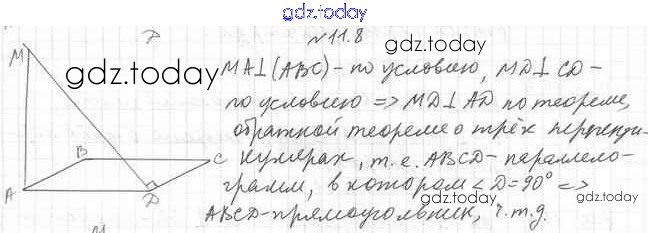 gdz.today
№11.8
gdz.today
M
gdz.today
MA⊥(ABC) - по условию, MD⊥CD -
по условию => MD⊥AD по теореме,
gdz.today
обратной теореме о трёх перпенди-
B
C
кулярах, т.е. ABCD - параллело-
A
D
грамм, в котором ∠D=90° =>
gdz.today
gdz.today
ABCD-прямоугольник, ч.т.д.
M